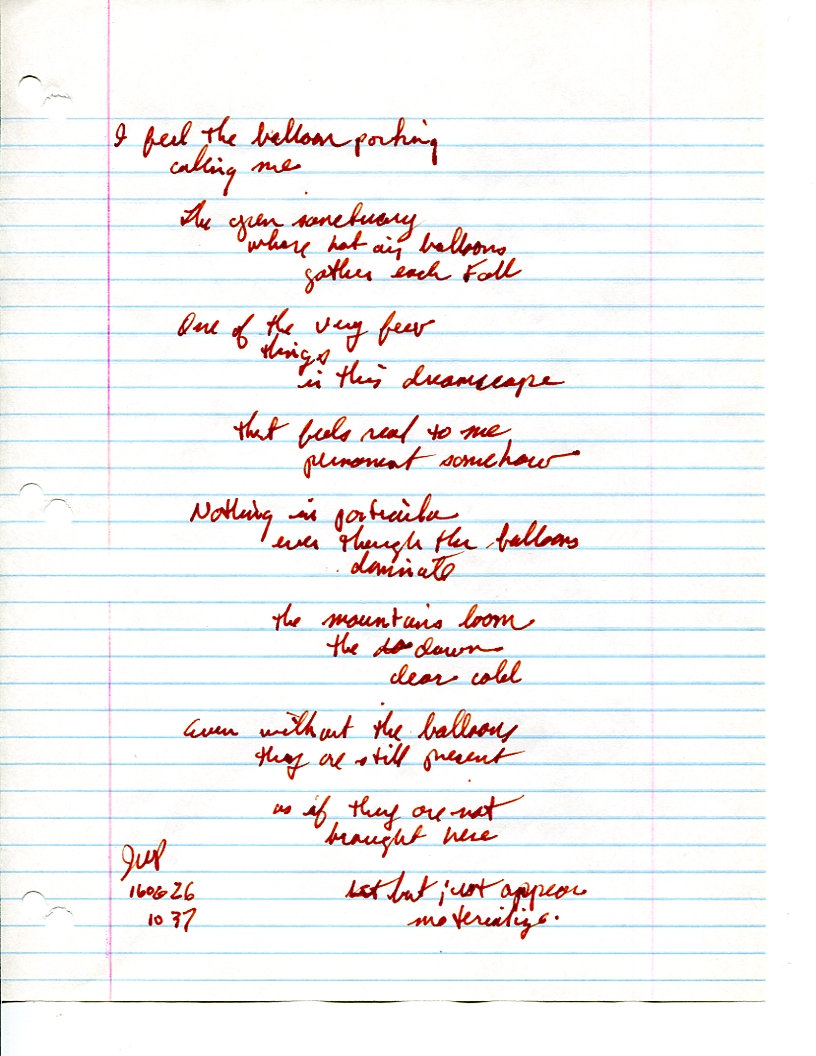 I feel the balloon porking
calling me
The open sanctuary
where hot air balloons
gather each Fall
One of the very few
things
in this dreamscape
that feels real to me
permanent somehow
Nothing in particular
even though the balloons
dominate
the mountains loom
the dawn
clear cold
Even without the balloons
they are still present
as if they are not
brought here
but just appear
materialize.
JWP
26
10 37